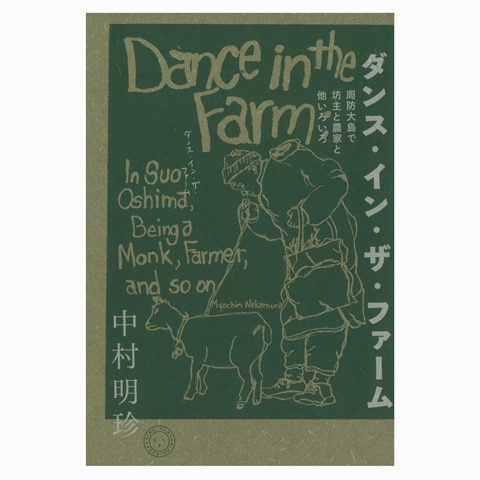 Dance in the
Farm
ダンス・イン・ザ・ファーム
周防大島で
坊主と農家と
他いろいろ
ダンス・イン・ザ
ファーム
In Suo
Oshima,
Being a
Monk, Farmer,
and so on
Myochin Nakamura
中村明珍